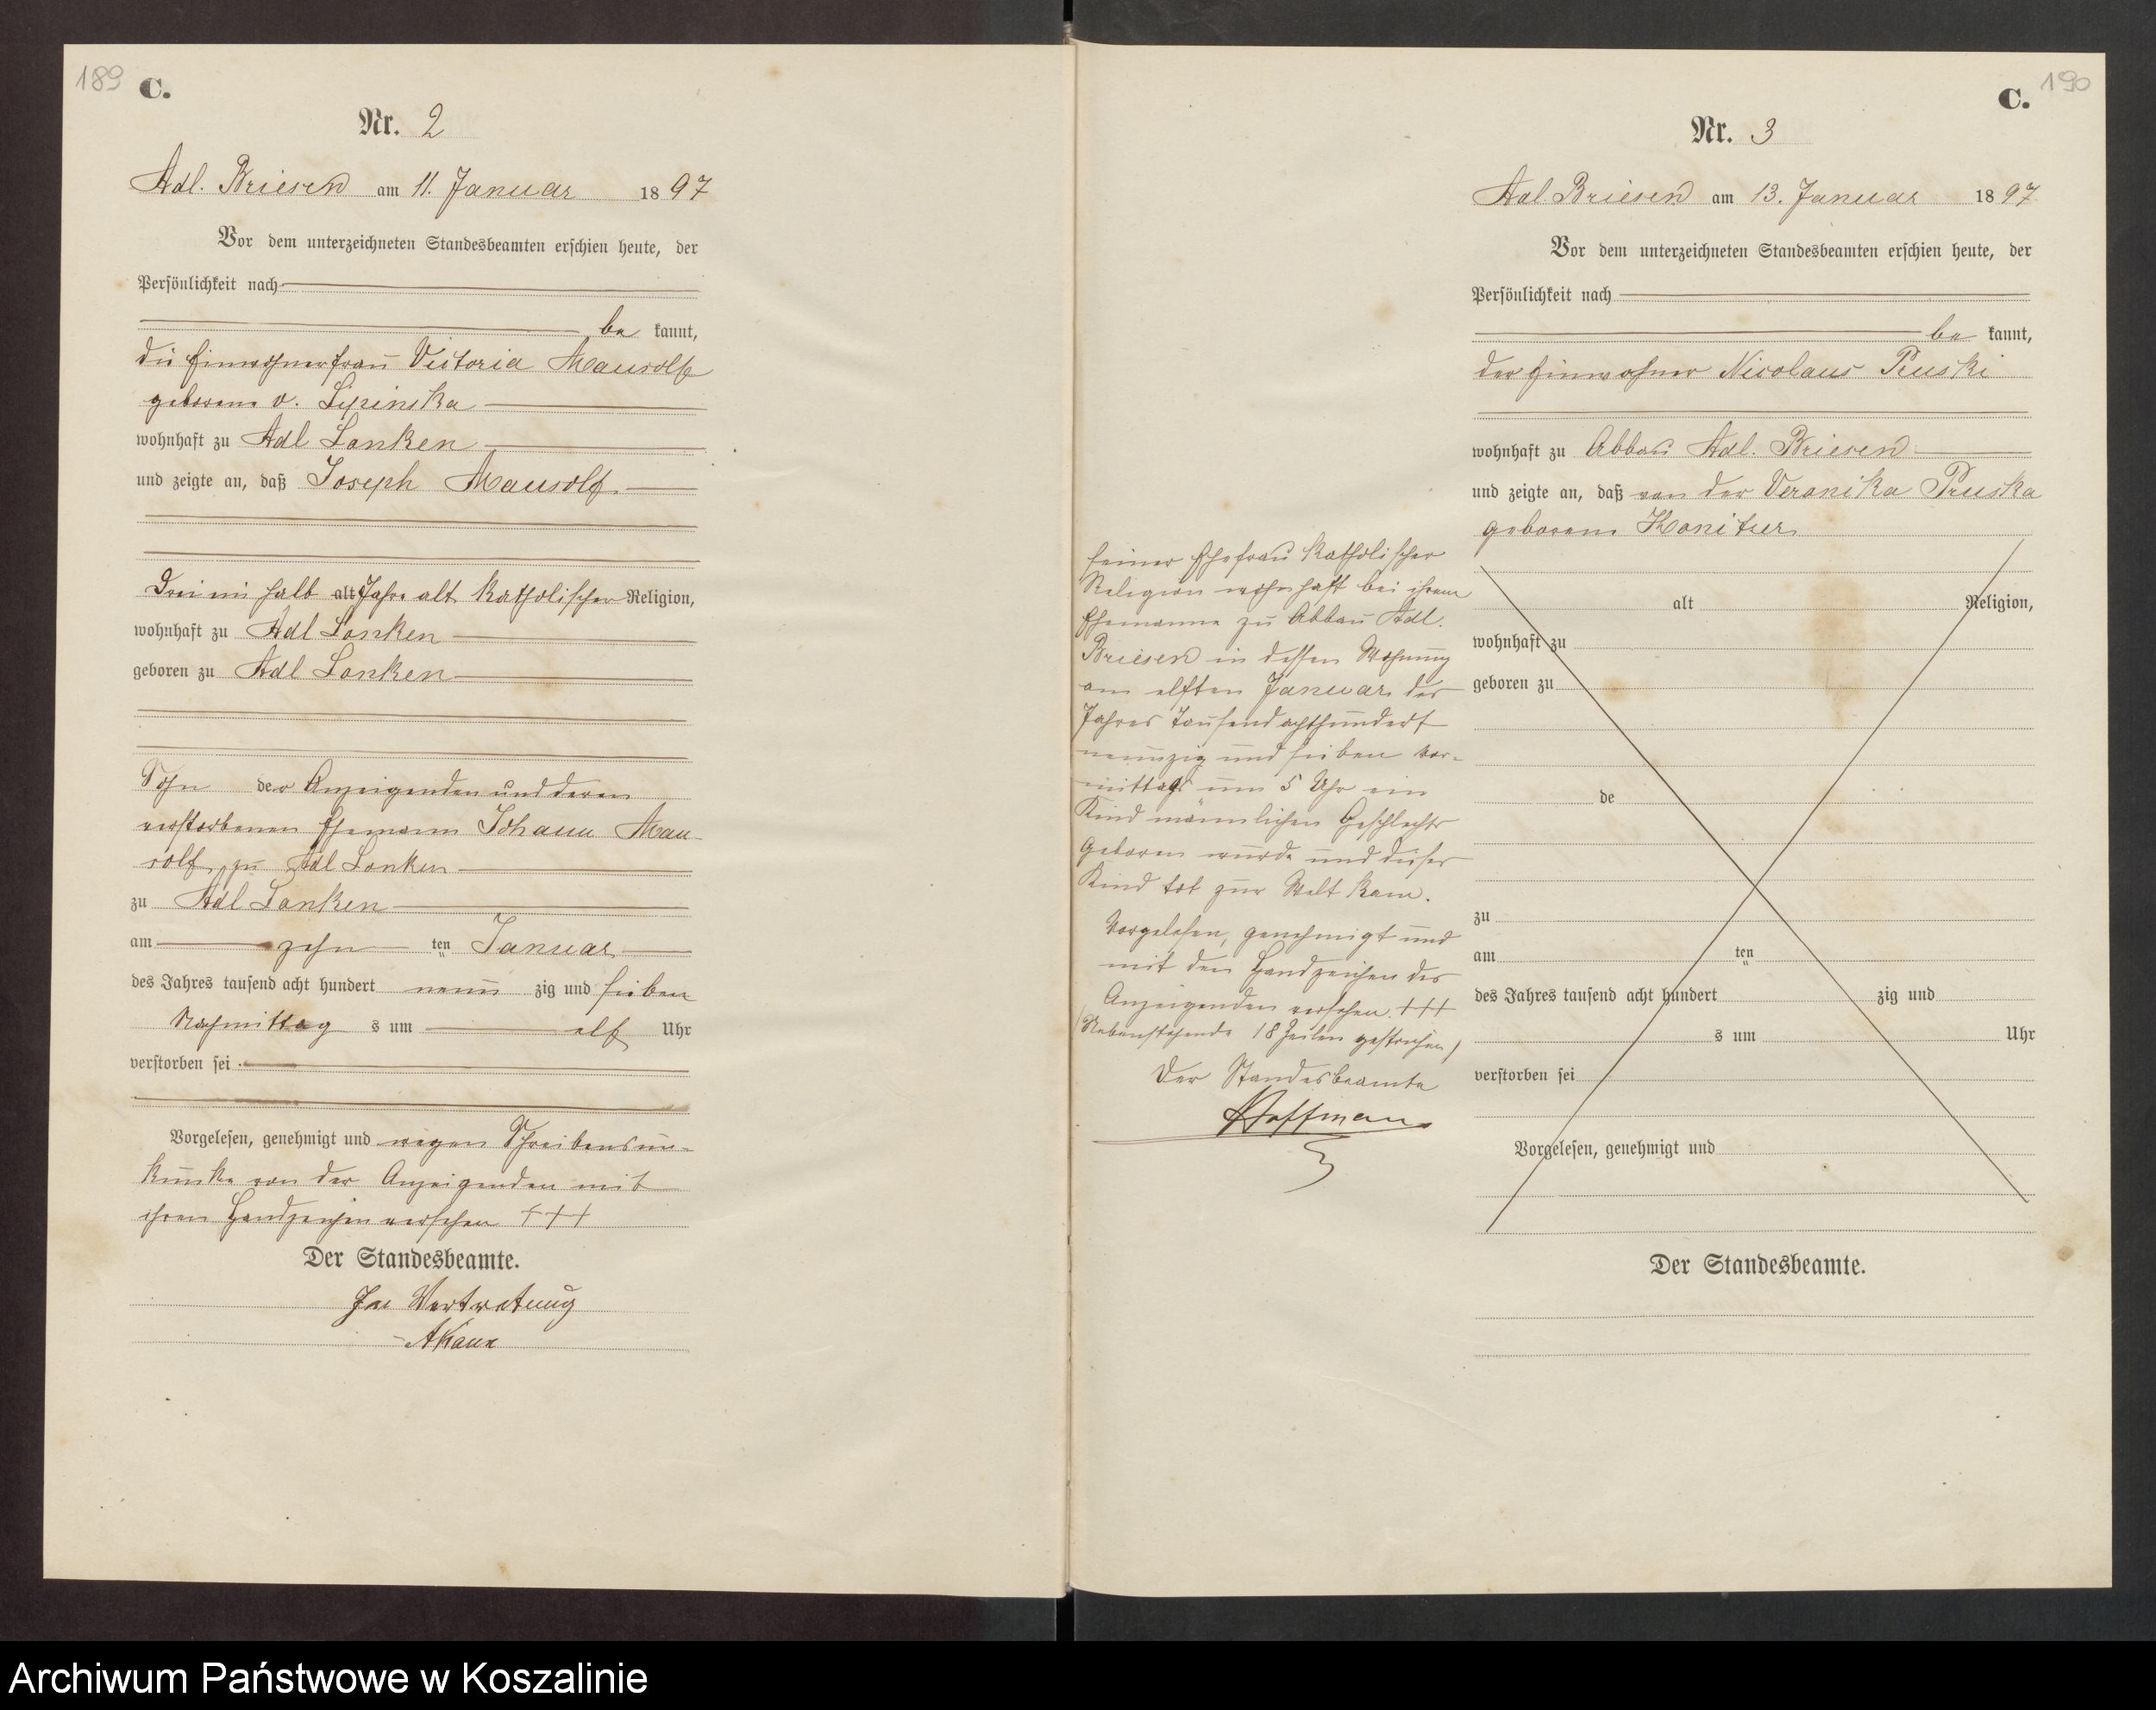 189
C.
Nr. 2
Adl. Briesen am 11. Januar 1897
Vor dem unterzeichneten Standesbeamten erschien heute, der
Persönlichkeit nach
be kannt,
die Einwohnerfrau Victoria Mausolf
geborene v. Lipinska
wohnhaft zu Adl Lonken
und zeigte an, daß Joseph Mausolf
alt Jahre alt katholischer Religion,
wohnhaft zu Adl Lonken
geboren zu Adl Lonken
Sohn der Anzeigenden und deren
verstorbenen Ehemann Johann Mau-
solf, zu Adl Lonken
zu Adl Lonken
am zehn ten Januar
des Jahres tausend acht hundert neun zig und sieben
Nachmittag s um elf Uhr
verstorben sei
Vorgelesen, genehmigt und wegen Schreibensun-
kunde von der Anzeigenden mit
ihren Handzeichen versehen +++
Der Standesbeamte.
In Vertretung
190
C.
Nr. 3
Adl Briesen am 13. Januar 1897
Vor dem unterzeichneten Standesbeamten erschien heute, der
Persönlichkeit nach
be kannt,
der Einwohner Nicolaus Pruski
wohnhaft zu Abbau Adl. Briesen
und zeigte an, daß von der Veronika Pruska
geborene Konitzer
seiner Ehefrau katholischer
Religion wohnhaft bei ihrem
Ehemanne zu Abbau Adl.
Briesen in dessen Wohnung
am elften Januar des
Jahres tausend achthundert
neunzig und sieben Vor-
mittags um 5 Uhr ein
Kind männlichen Geschlechts
geboren wurde und dieses
Kind tot zur Welt kam.
Vorgelesen, genehmigt und
mit den Handzeichen des
Anzeigenden versehen. +++
(Nebenstehende 18 Zeilen gestrichen)
Der Standesbeamte
Hoffmann
alt Religion,
wohnhaft zu
geboren zu
de
zu
am ten
des Jahres tausend acht hundert zig und
s um Uhr
verstorben sei
Vorgelesen, genehmigt und
Der Standesbeamte.
Archiwum Państwowe w Koszalinie